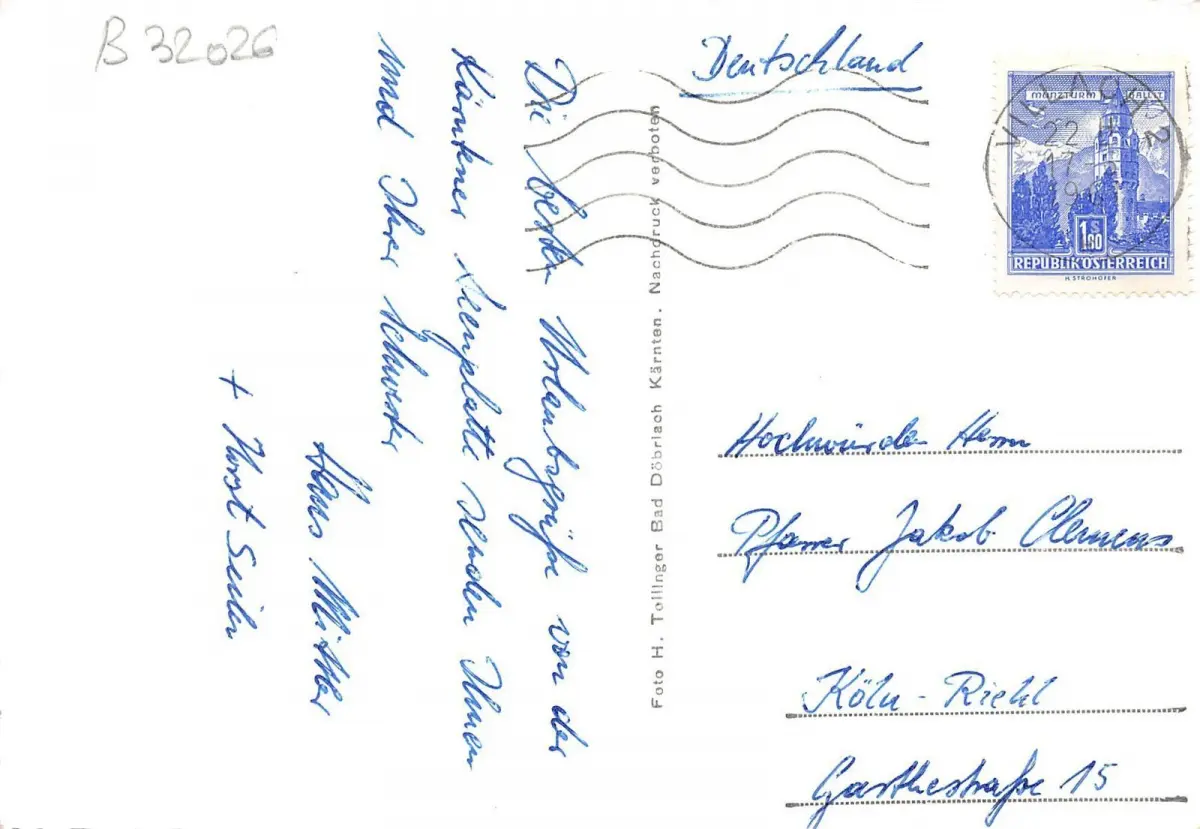 B 32026
Die besten Urlaubsgrüße von der
Kärntener Seenplatte senden Ihnen
und Ihrer Schwester
Hans Mittler
+ Horst Seiler
Foto H. Tollinger Bad Döbriach Kärnten. Nachdruck verboten
Deutschland
MÜNZTURM HALL I.T.
VILLACH 2
22
17
1 S 80
REPUBLIK ÖSTERREICH
H. STROHOFER
Hochwürden Herrn
Pfarrer Jakob Clemens
Köln-Riehl
Garthestraße 15